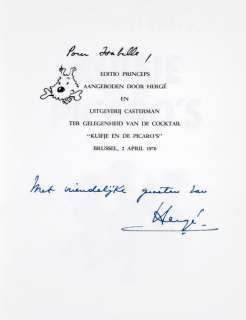 Pour Isabelle,
EDITIO PRINCEPS
AANGEBODEN DOOR HERGÉ
EN
UITGEVERIJ CASTERMAN
TER GELEGENHEID VAN DE COCKTAIL
"KUIFJE EN DE PICARO'S"
BRUSSEL, 2 APRIL 1976
Met vriendelijke groeten van
Hergé